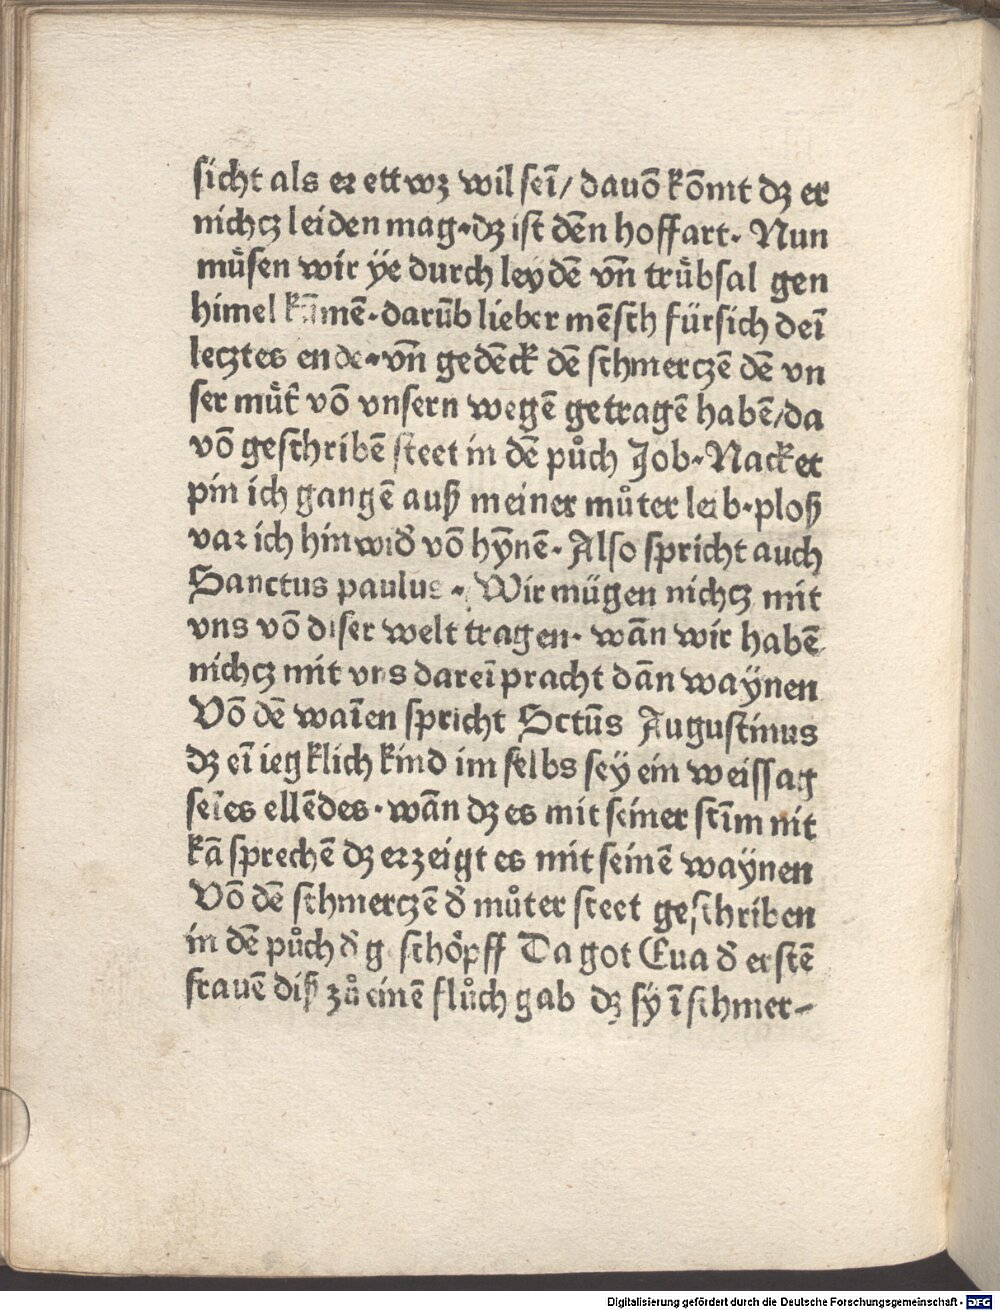 sicht als er ettwz wil seī/ dauō kōmt dz er
nichcz leiden mag. dz ist dēn hoffart. Nun
müͤsen wir ÿe durch leydē vn̄ truͤbsal gen
himel kūmē. darūb lieber mēsch fürsich deī
lecztes ende. vn̄ gedēck dē schmerczē dē vn
ser muͤt̄ vō vnsern wegē getragē habē/da
vō geschribē steet in dē puͦch Job. Nacket
pin ich gangē auß meiner muͦter leib. ploß
var ich hinwid̄ vō hȳnē. Also spricht auch
Sanctus paulus. Wir mügen nichcz mit
vns vō diser welt tragen. wān wir habē
nichcz mit vns dareī pracht dān waÿnen
Vō dē waīen spricht Sctūs Augustinus
dz eī iegklich kind im selbs seÿ ein weissag
seīes ellēdes. wān dz es mit seiner stīm nit
kā sprechē dz erzeigt es mit seinē waÿnen
Vō dē schmerczē d̄ muͦter steet geschriben
in dē puͦch d̄ g schoͤpff Da got Eua d̄ erstē
frauē diß zuͦ einē fluͦch gab dz sÿ ī schmer-
Digitalisierung gefördert durch die Deutsche Forschungsgemeinschaft - DFG